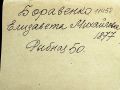 Боравенко
Елизавета Михайловна
1877
Рыбная 50.